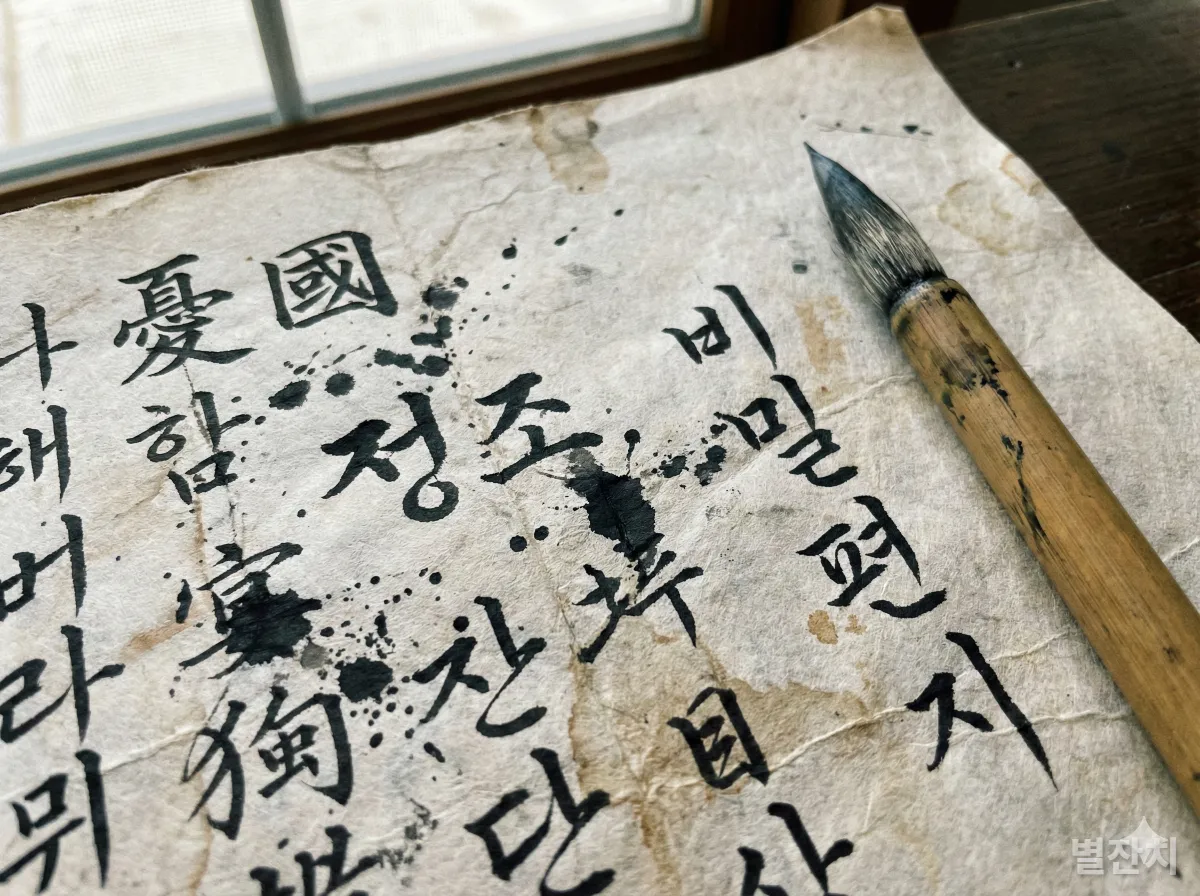 비밀편지
조目사
國정찬단
憂함獨
해버라뮈
별잔치